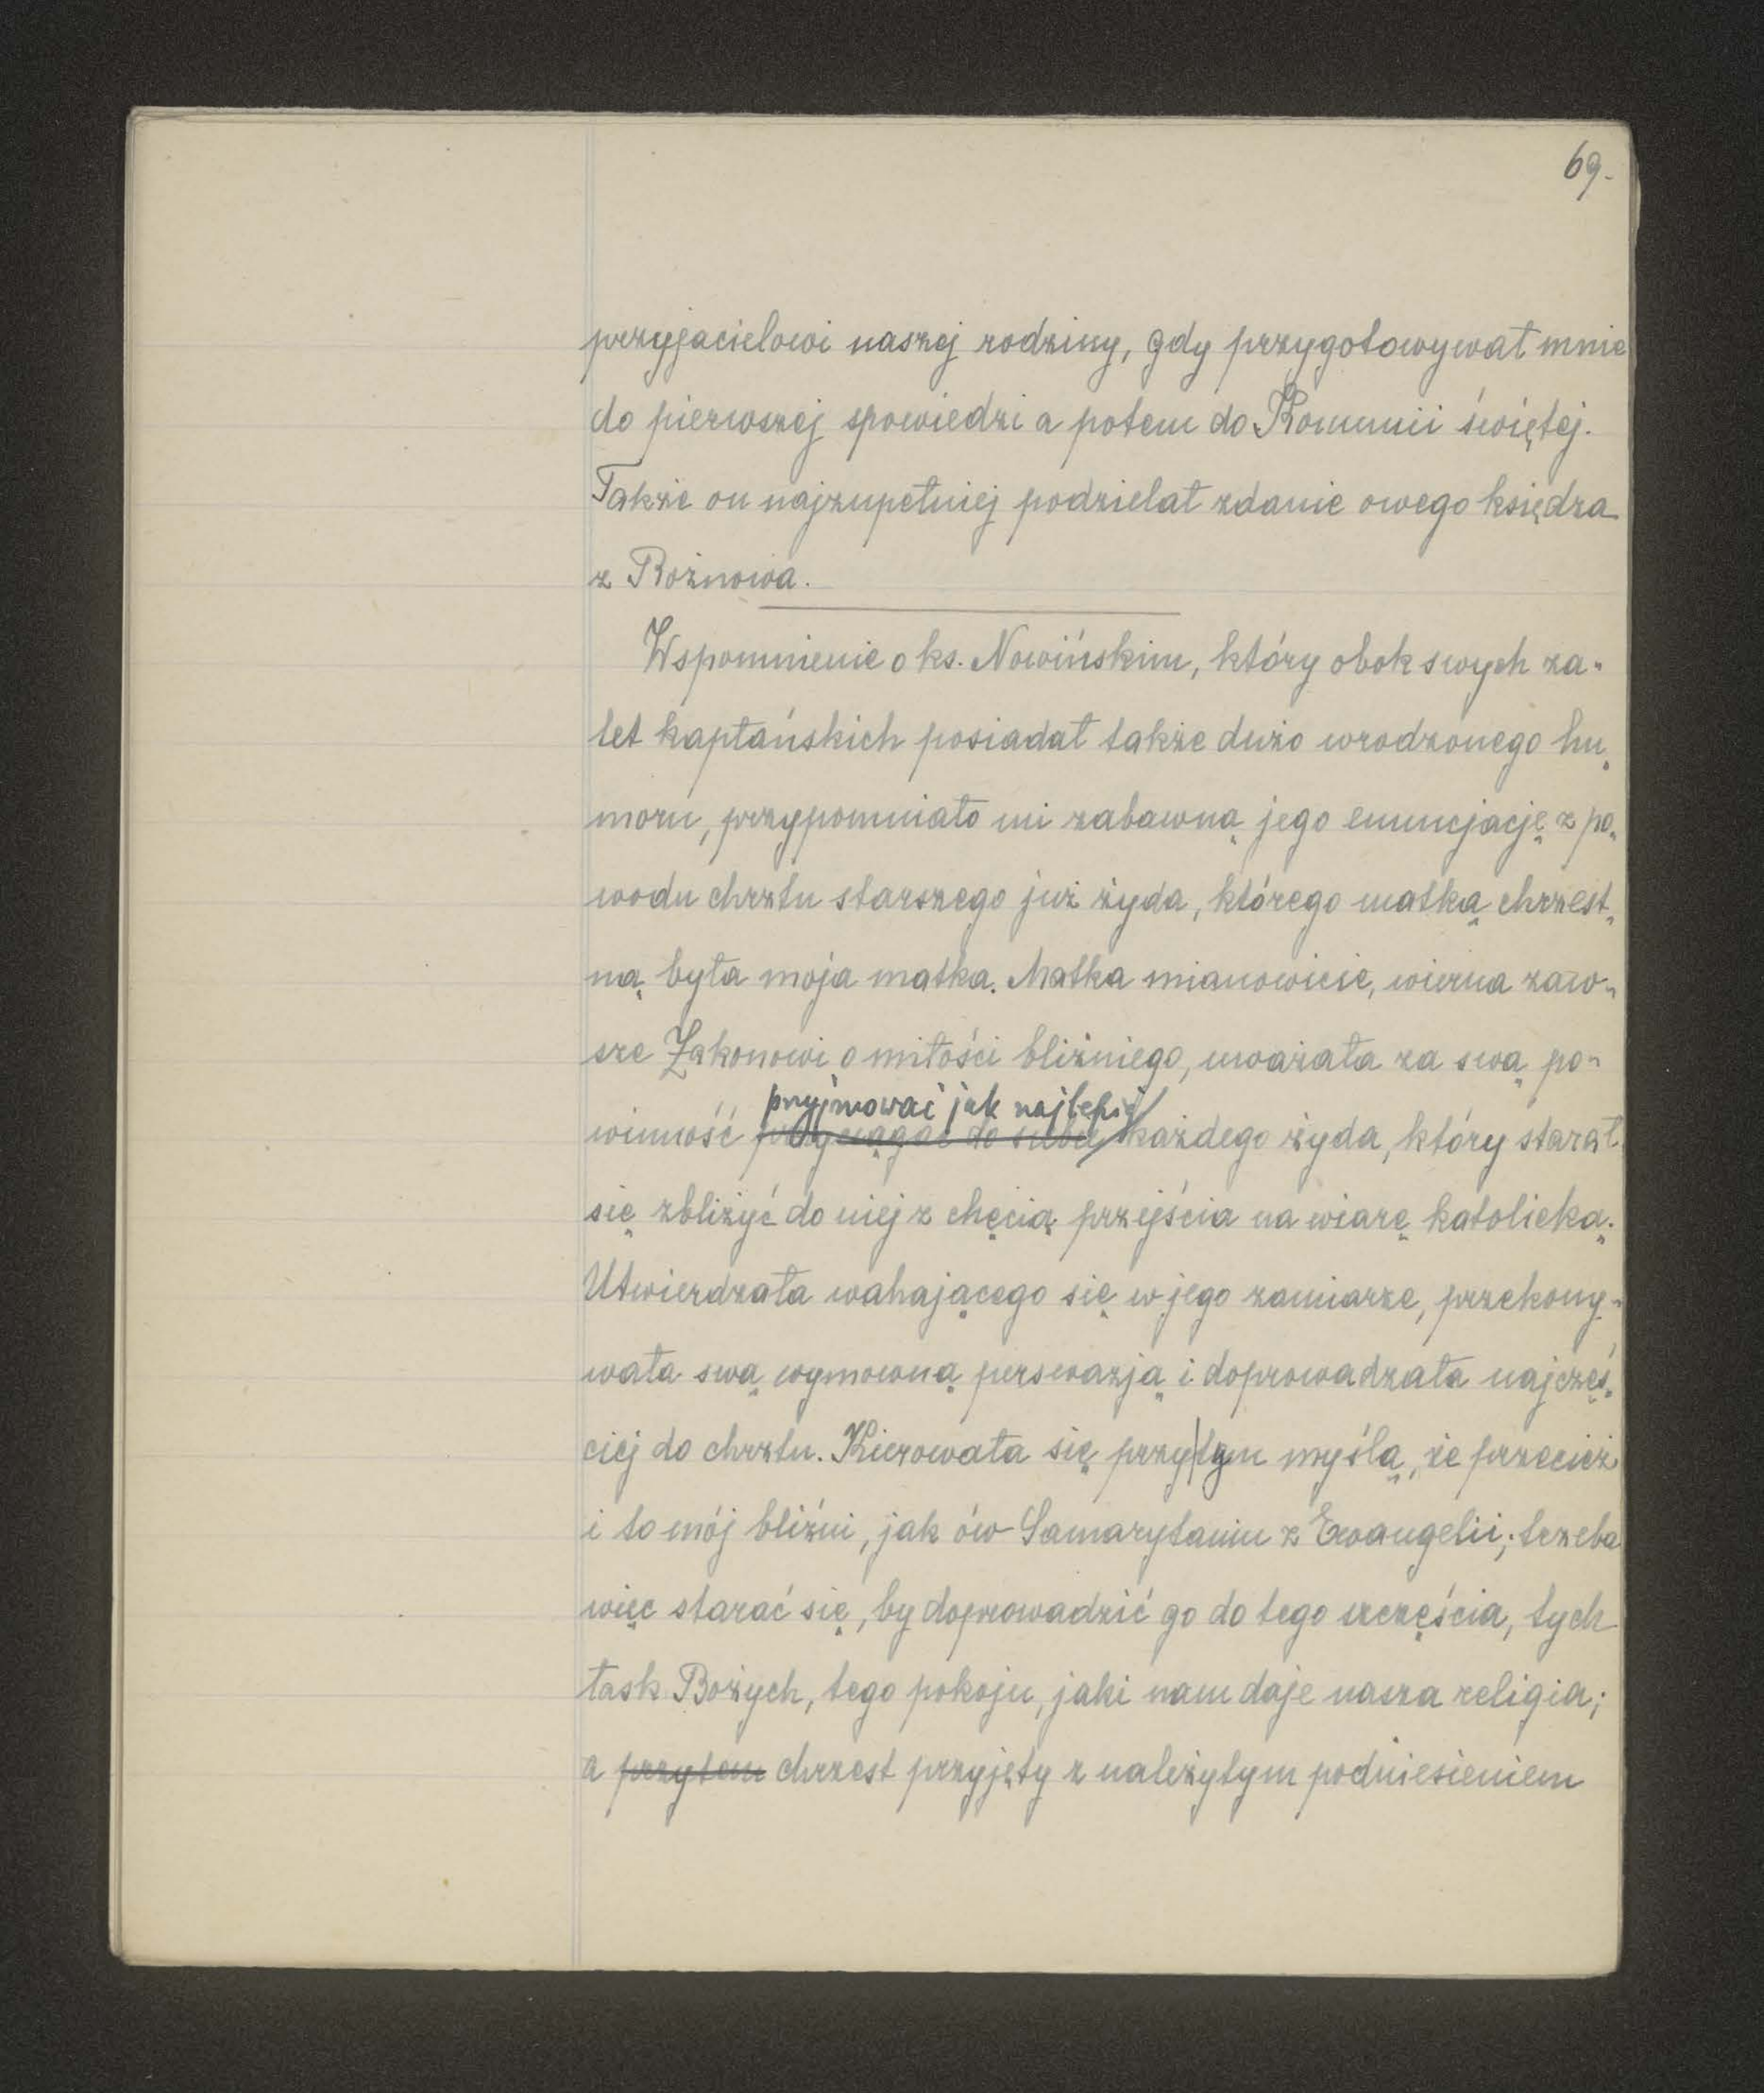 69.
przyjacielowi naszej rodziny, gdy przygotowywał mnie
do pierwszej spowiedzi a potem do Komunii świętej.
Także on najzupełniej podzielał zdanie owego księdza
z Rożnowa.
Wspomnienie o ks. Nowińskim, który obok swych za-
let kapłańskich posiadał także dużo wrodzonego hu-
moru, przypomniało mi zabawną jego enuncjację z po-
wodu chrztu starszego już żyda, którego matką chrzest-
ną była moja matka. Matka mianowicie, wierna zaw-
sze Zakonowi o miłości bliźniego, uważała za swą po-
przyjmować jak najlepiej
winność przyciągać do siebie każdego żyda, który starał
się zbliżyć do niej z chęcią przejścia na wiarę katolicką.
Utwierdzała wahającego się w jego zamiarze, przekony-
wała swą wymowną perswazją i doprowadzała najczęś-
ciej do chrztu. Kierowała się przy|tym myślą, że przecież
i to mój bliźni, jak ów Samarytanin z Ewangelii; trzeba
więc starać się, by doprowadzić go do tego szczęścia, tych
łask Bożych, tego pokoju, jaki nam daje nasza religia;
a przytem chrzest przyjęty z należytym podniesieniem